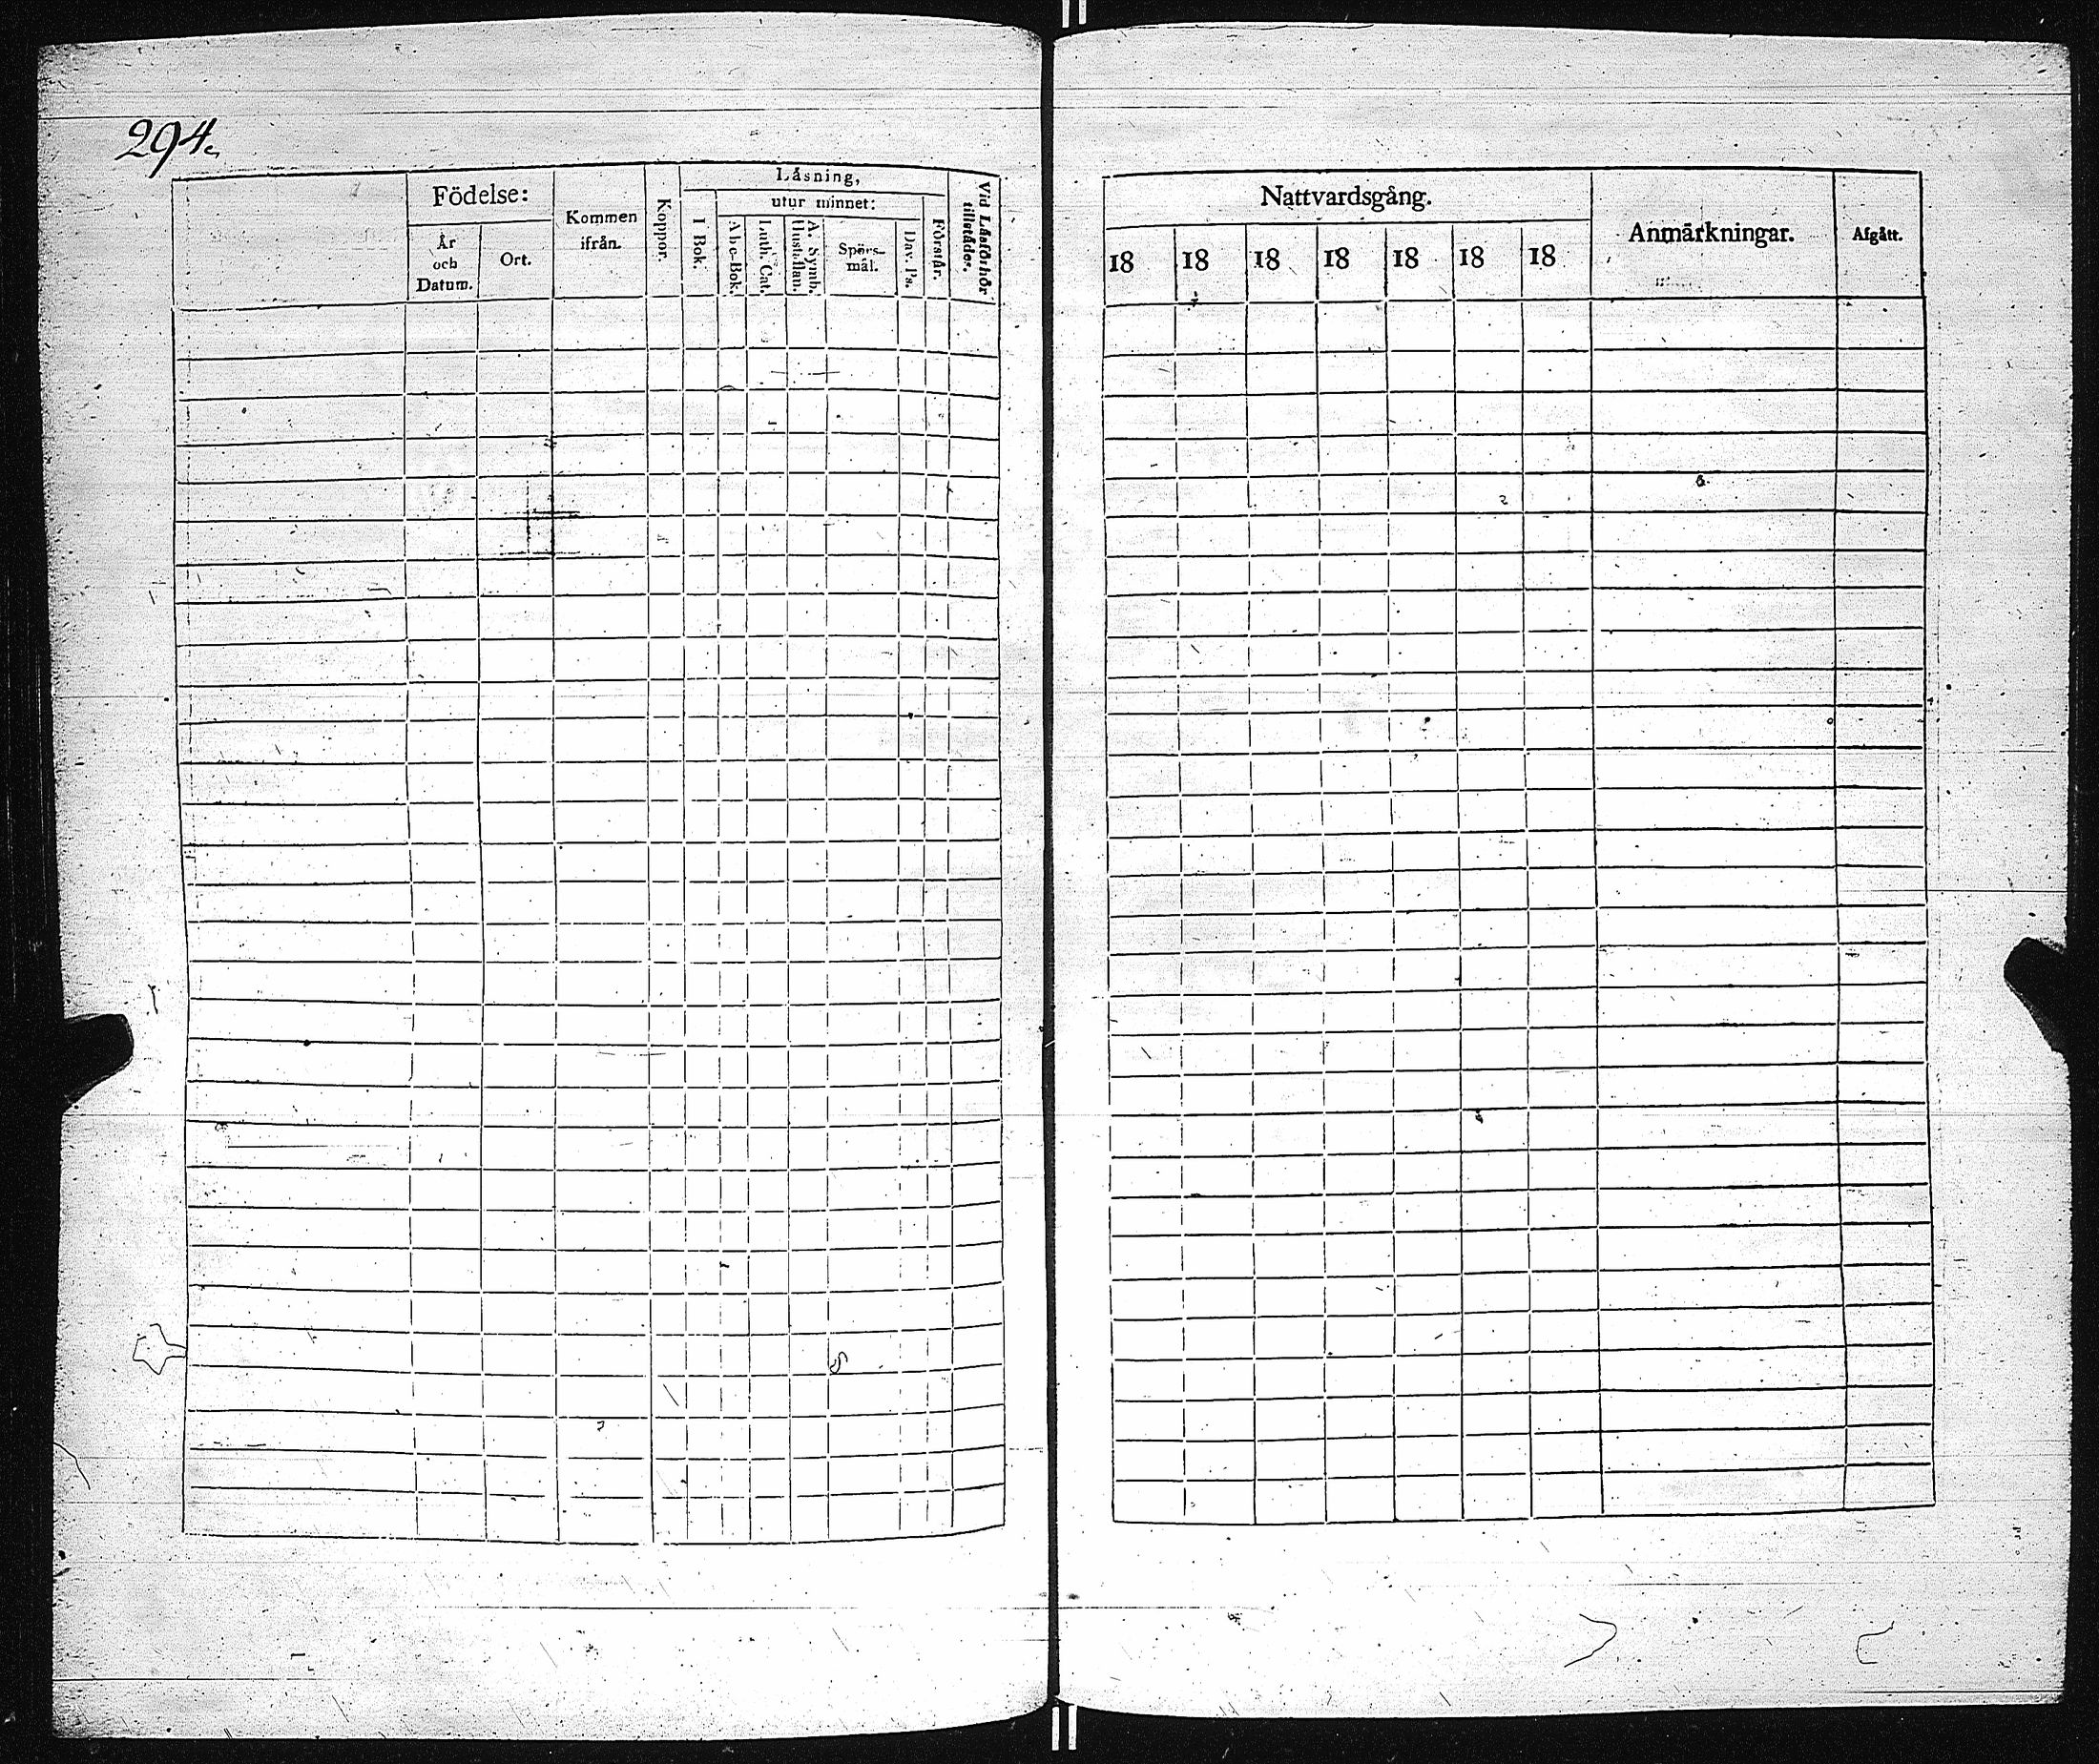 294.
Födelse:
År
och
Datum.
Ort.
Kommen
ifrån.
Koppor.
Läsning,
I Bok.
utur minnet:
Abc-Bok.
Luth. Cat.
A. Symb.
Hustaflan.
Spörs-
mål.
Dav. Ps.
Förstår.
Vid Läsförhör
tillstädes.
Nattvardsgång.
18 18 18 18 18 18 18
Anmärkningar.
Afgått.